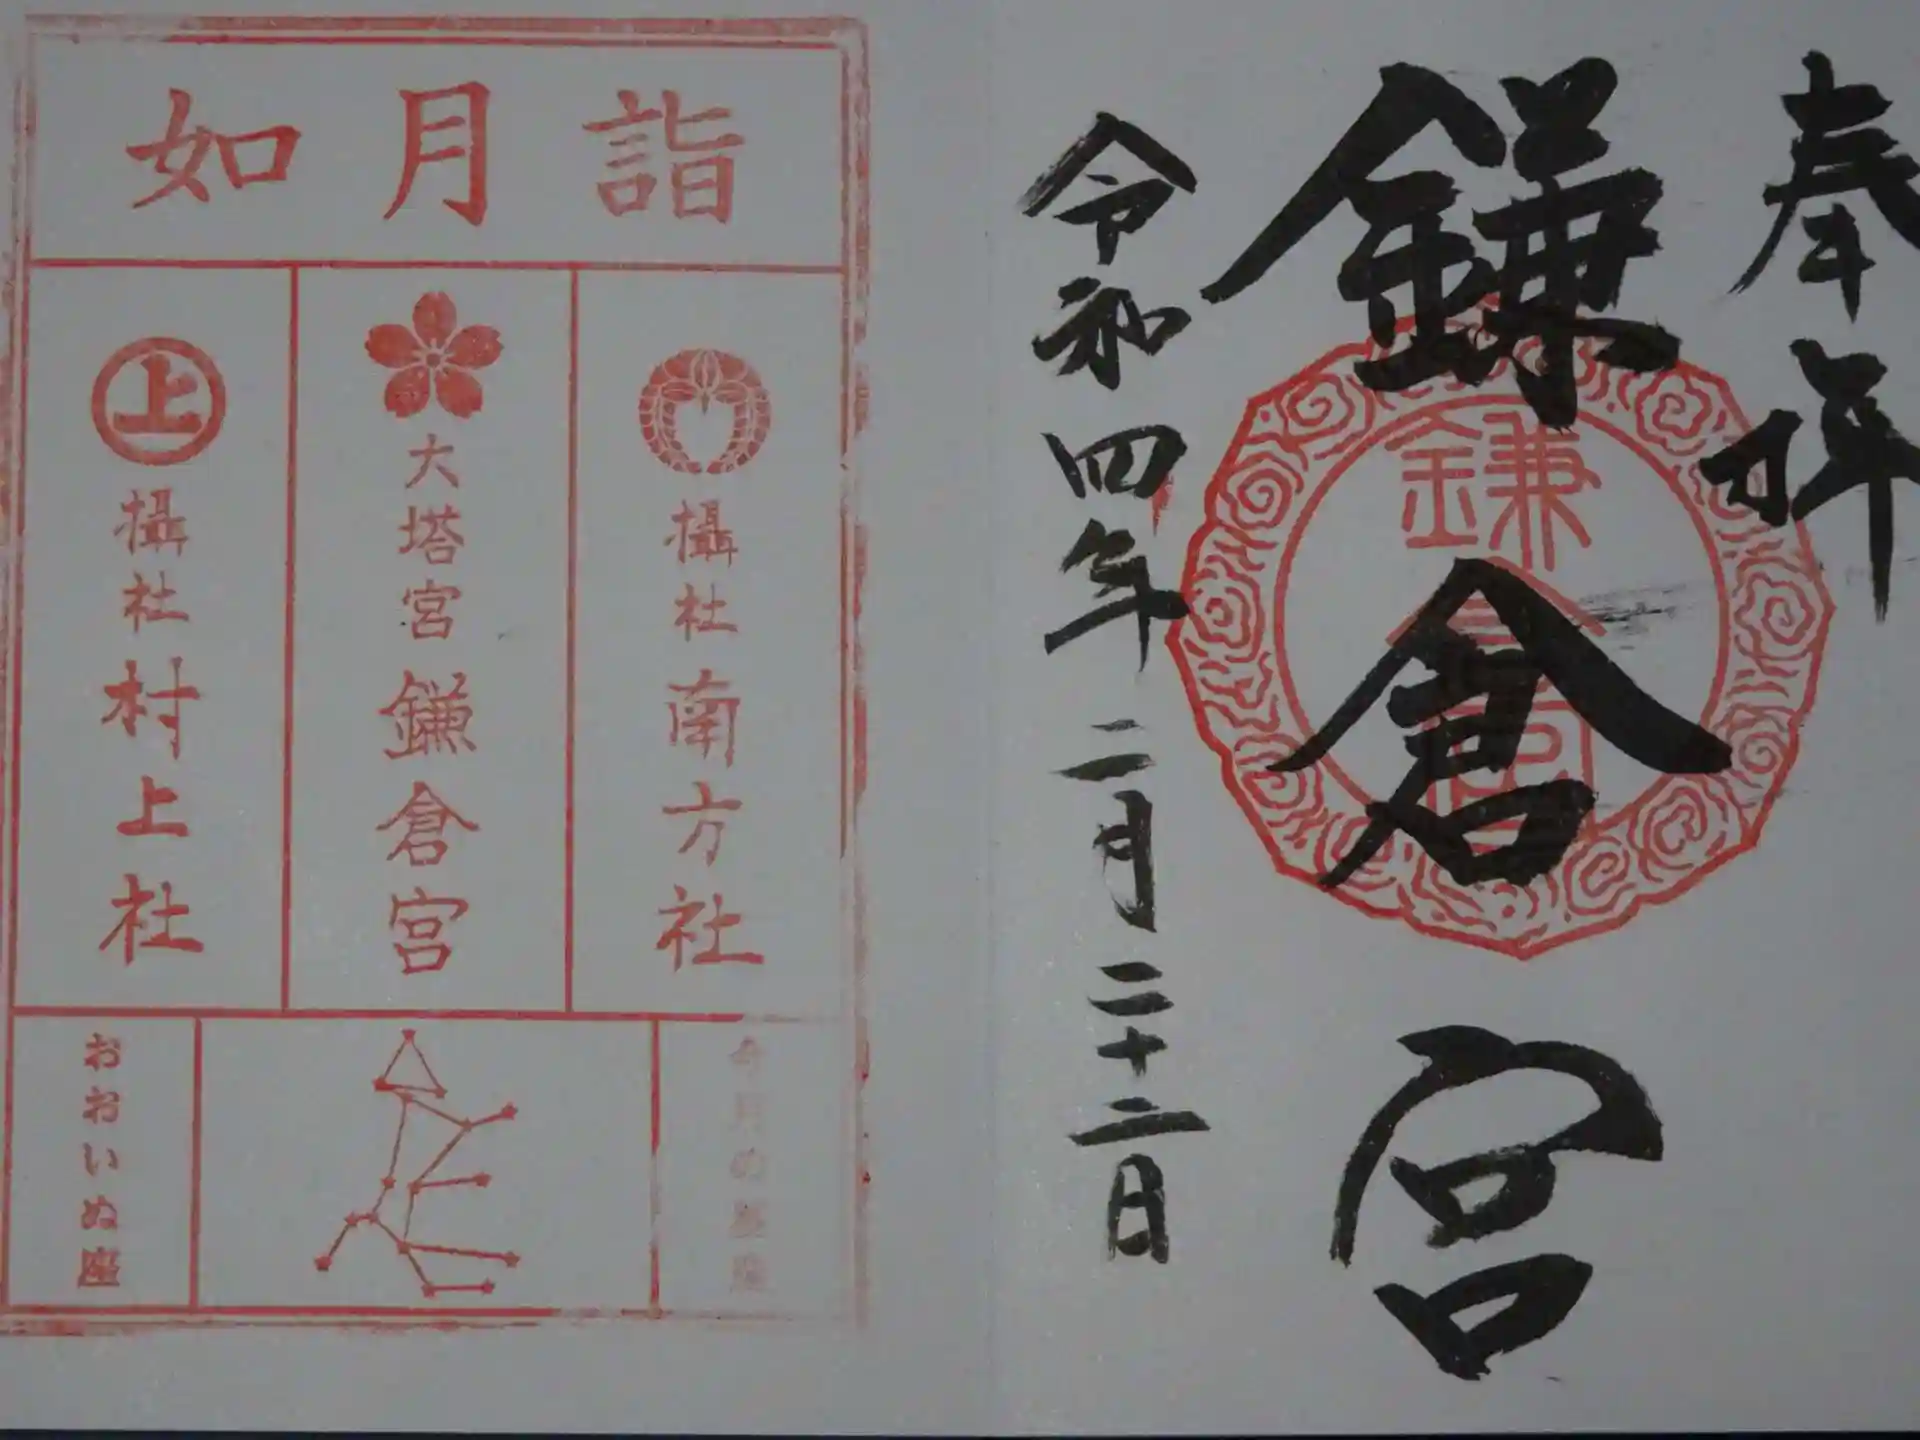 奉拝
鎌倉宮
令和四年二月二十二日
鎌倉宮
如月詣
攝社 南方社
大塔宮 鎌倉宮
上
攝社 村上社
今月の星座
おおいぬ座